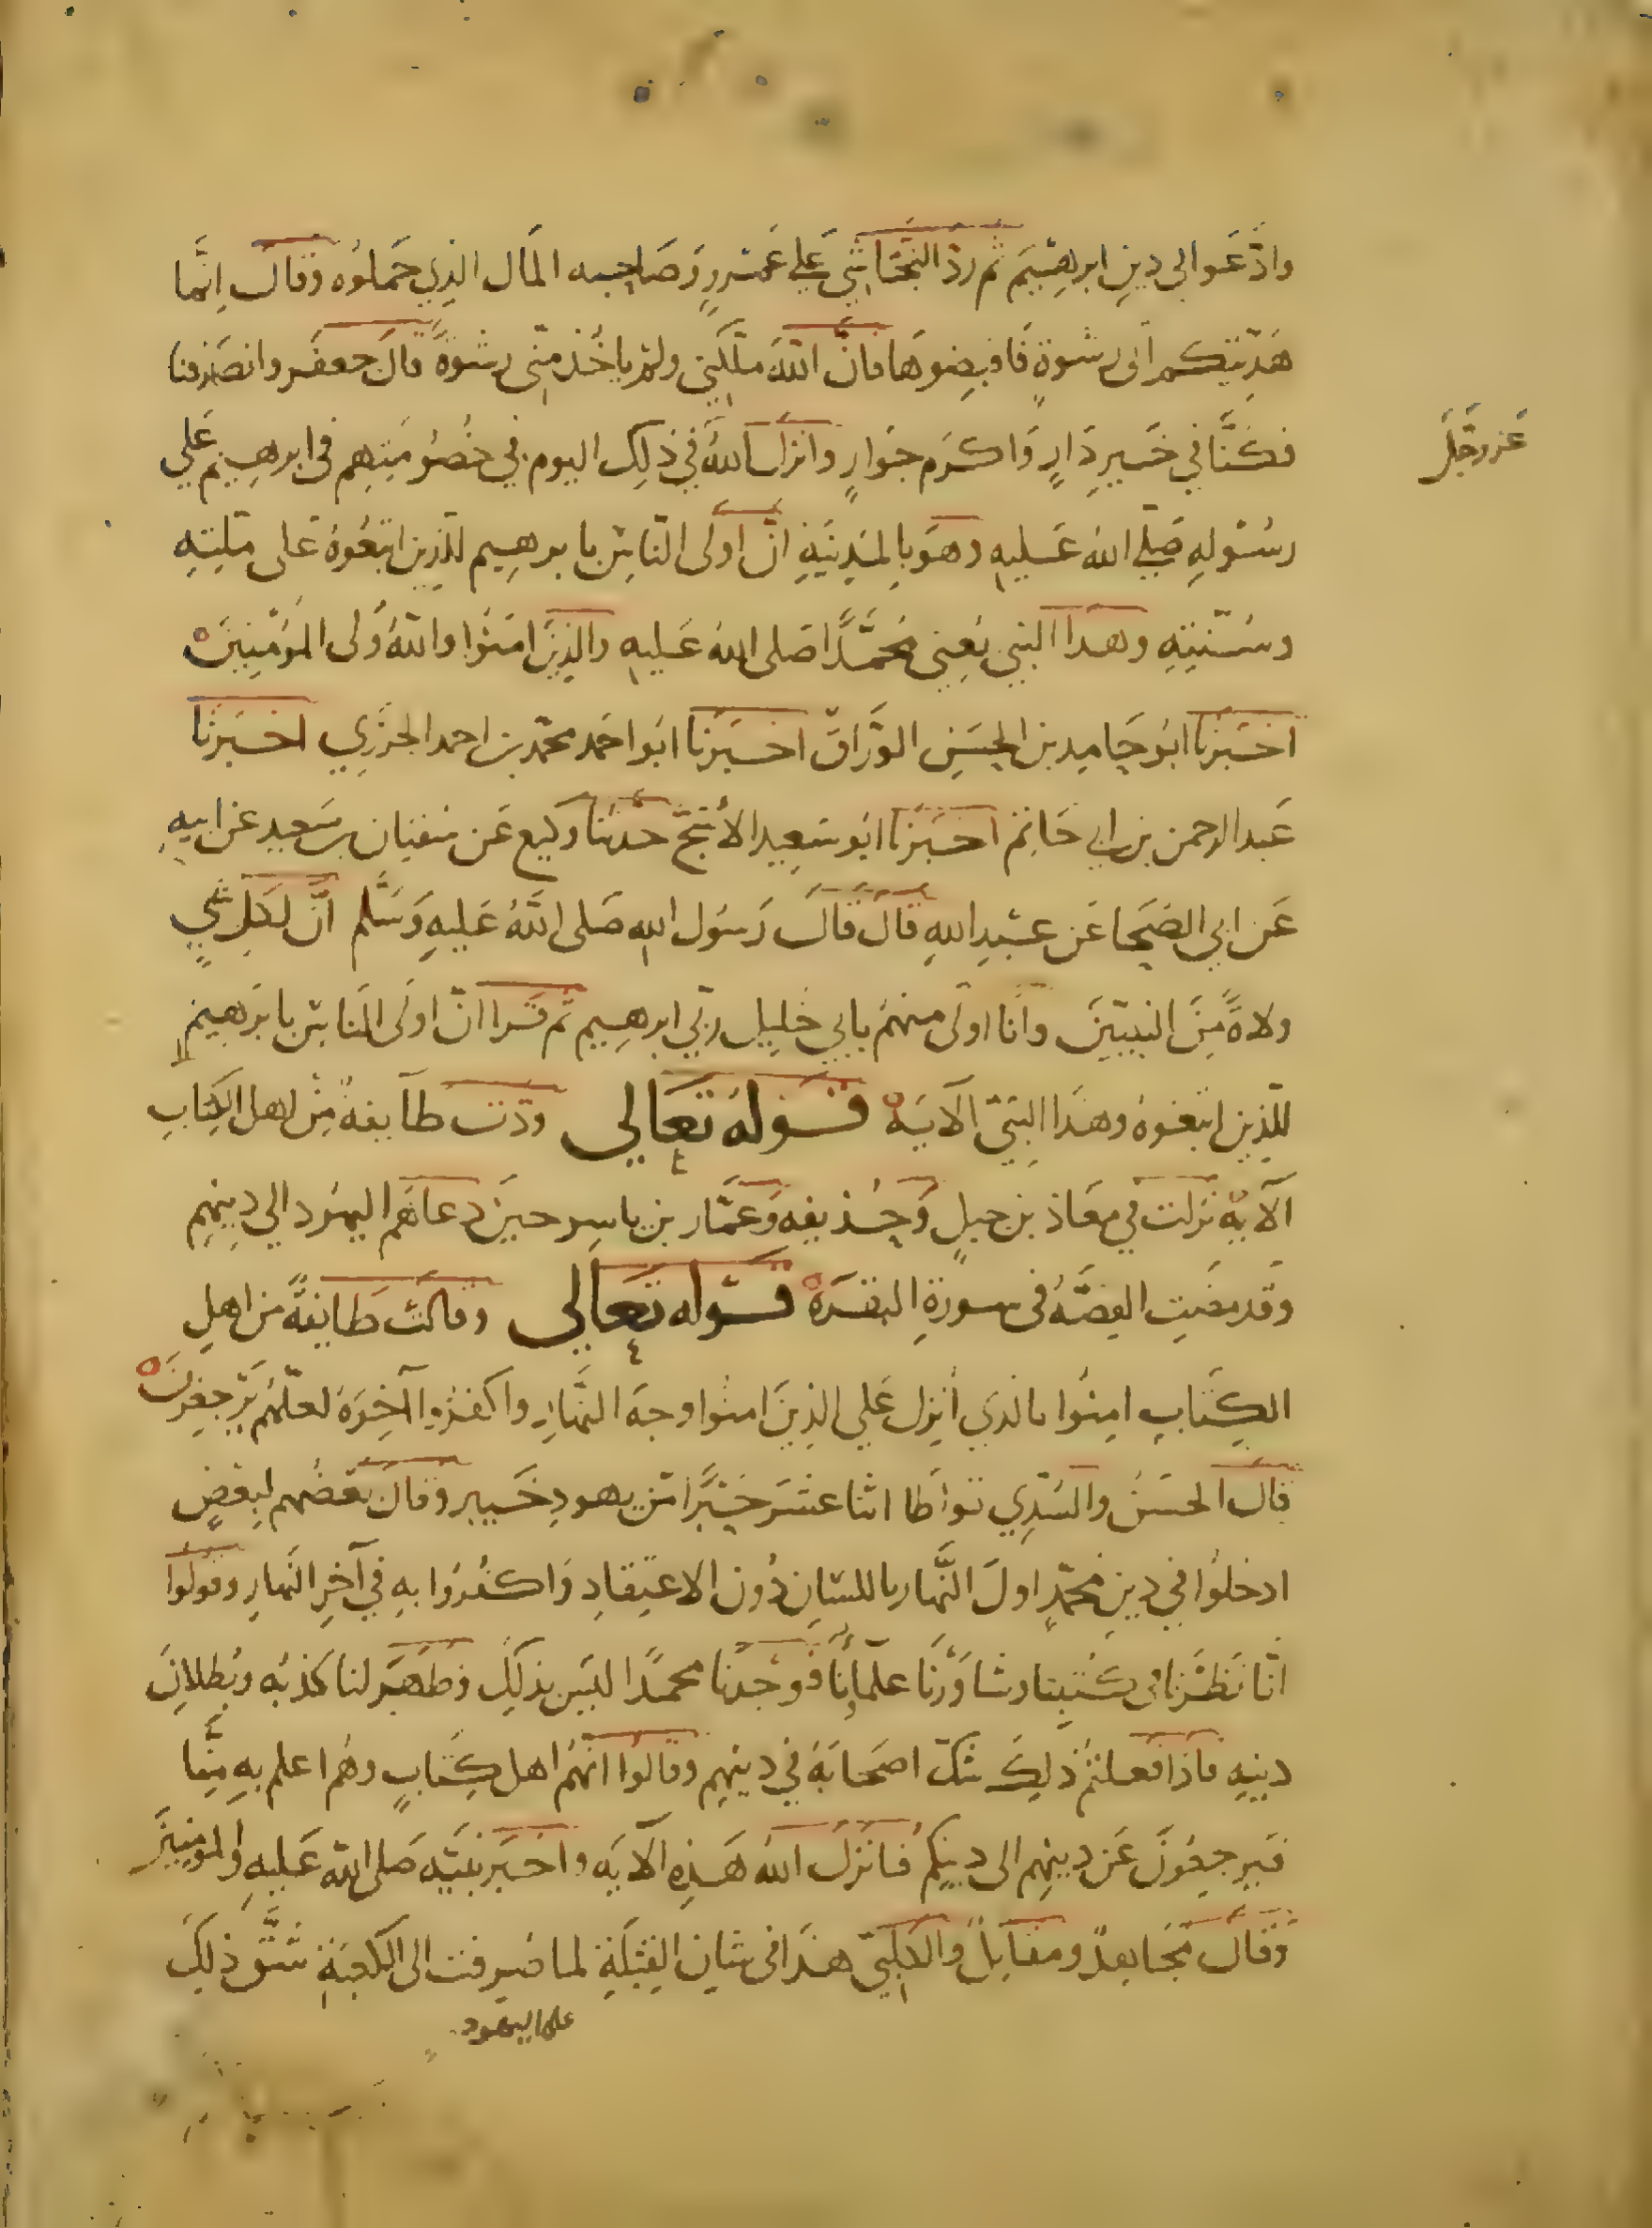 وادّعوا لى دين ابرهيم ثم ردّ النجاشي علي عمرو وصاحبه المال الذي حملوه وقال انّما
هديتكم الى رشوة فاقبضوها فانّ الله ملكني ولم ياخذ منّي رشوة قال جعفر وانصرفنا
فكنّا في خير دار واكرم جوار وانزل الله في ذلك اليوم في خصومتهم في ابرهيم علي
عز وجل
رسوله صلي الله عليه وهو بالمدينة انّ اولى الناس بابرهيم للذين اتبعوه على ملته
وسنته وهذا النبي يعني محمّدا صلى الله عليه والذين امنوا والله ولى المؤمنين
اخبرنا ابو حامد بن الحسن الورّاق اخبرنا ابو احمد محمّد بن احمد الجزري اخبرنا
عبد الرحمن بن ابي حاتم اخبرنا ابو سعيد الاشج حدثنا وكيع عن سفيان بن سعيد عن ابيه
عن ابي الضحا عن عبد الله قال قال رسول الله صلى الله عليه وسلم انّ لكل شي
ولاة من النبيين وانا اولى منهم بابي خليل ربّي ابرهيم ثم قرا انّ اولى الناس بابرهيم
للذين اتبعوه وهذا النبيّ الآية قوله تعالي ودّت طآيفة من اهل الكتاب
الآية نزلت في معاذ بن جبل وحذيفه وعمّار بن ياسر حين دعاهم اليهود الي دينهم
وقد مضت القصّة في سورة البقرة قوله تعالي وقالت طايفة من اهل
الكتاب امنوا بالذي أنزل علي الذين امنوا وجه النهار واكفروا آخره لعلّهم يرجعون
قال الحسن والسّدي تواطا اثنا عشر حبرا من يهود خيبر وقال بعضهم لبعض
ادخلوا في دين محمّد اول النّهار باللسان دون الاعتقاد واكفروا به في آخر النّهار وقولوا
انّا نظرنا في كتبنا وشاورنا علمآنا فوجدنا محمدا ليس بذلك وظهر لنا كذبه وبطلان
دينه فاذا فعلتم ذلك شكّ اصحابه في دينهم وقالوا انّهم اهل كتاب وهم اعلم به منّا
فيرجعون عن دينهم الى دينكم فانزل الله هذه الآية واخبر نبيّه صلى الله عليه والمومنين
وقال مجاهد ومقاتل والكلبيّ هذا في شان القبلة لما صرفت الى الكعبة شقّ ذلك
على اليهود